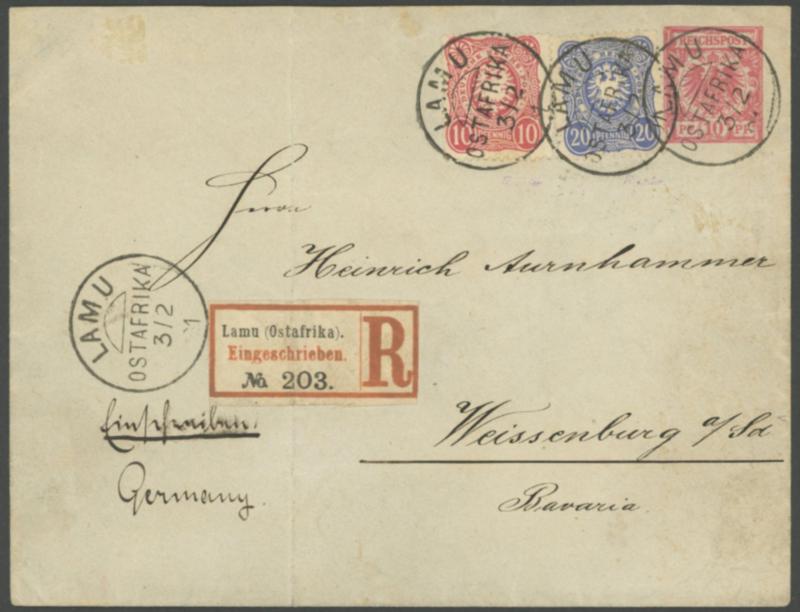 LAMU
OSTAFRIKA
3/2
10 PFENNIG 10
LAMU
OSTAFRIKA
3/2
20 PFENNIG 20
REICHSPOST
LAMU
OSTAFRIKA
3/2
10
Herrn
Heinrich Aurnhammer
LAMU
OSTAFRIKA
3/2
Lamu (Ostafrika).
Eingeschrieben.
No. 203.
R
Einschreiben
Weissenburg a/Sd
Germany.
Bavaria.